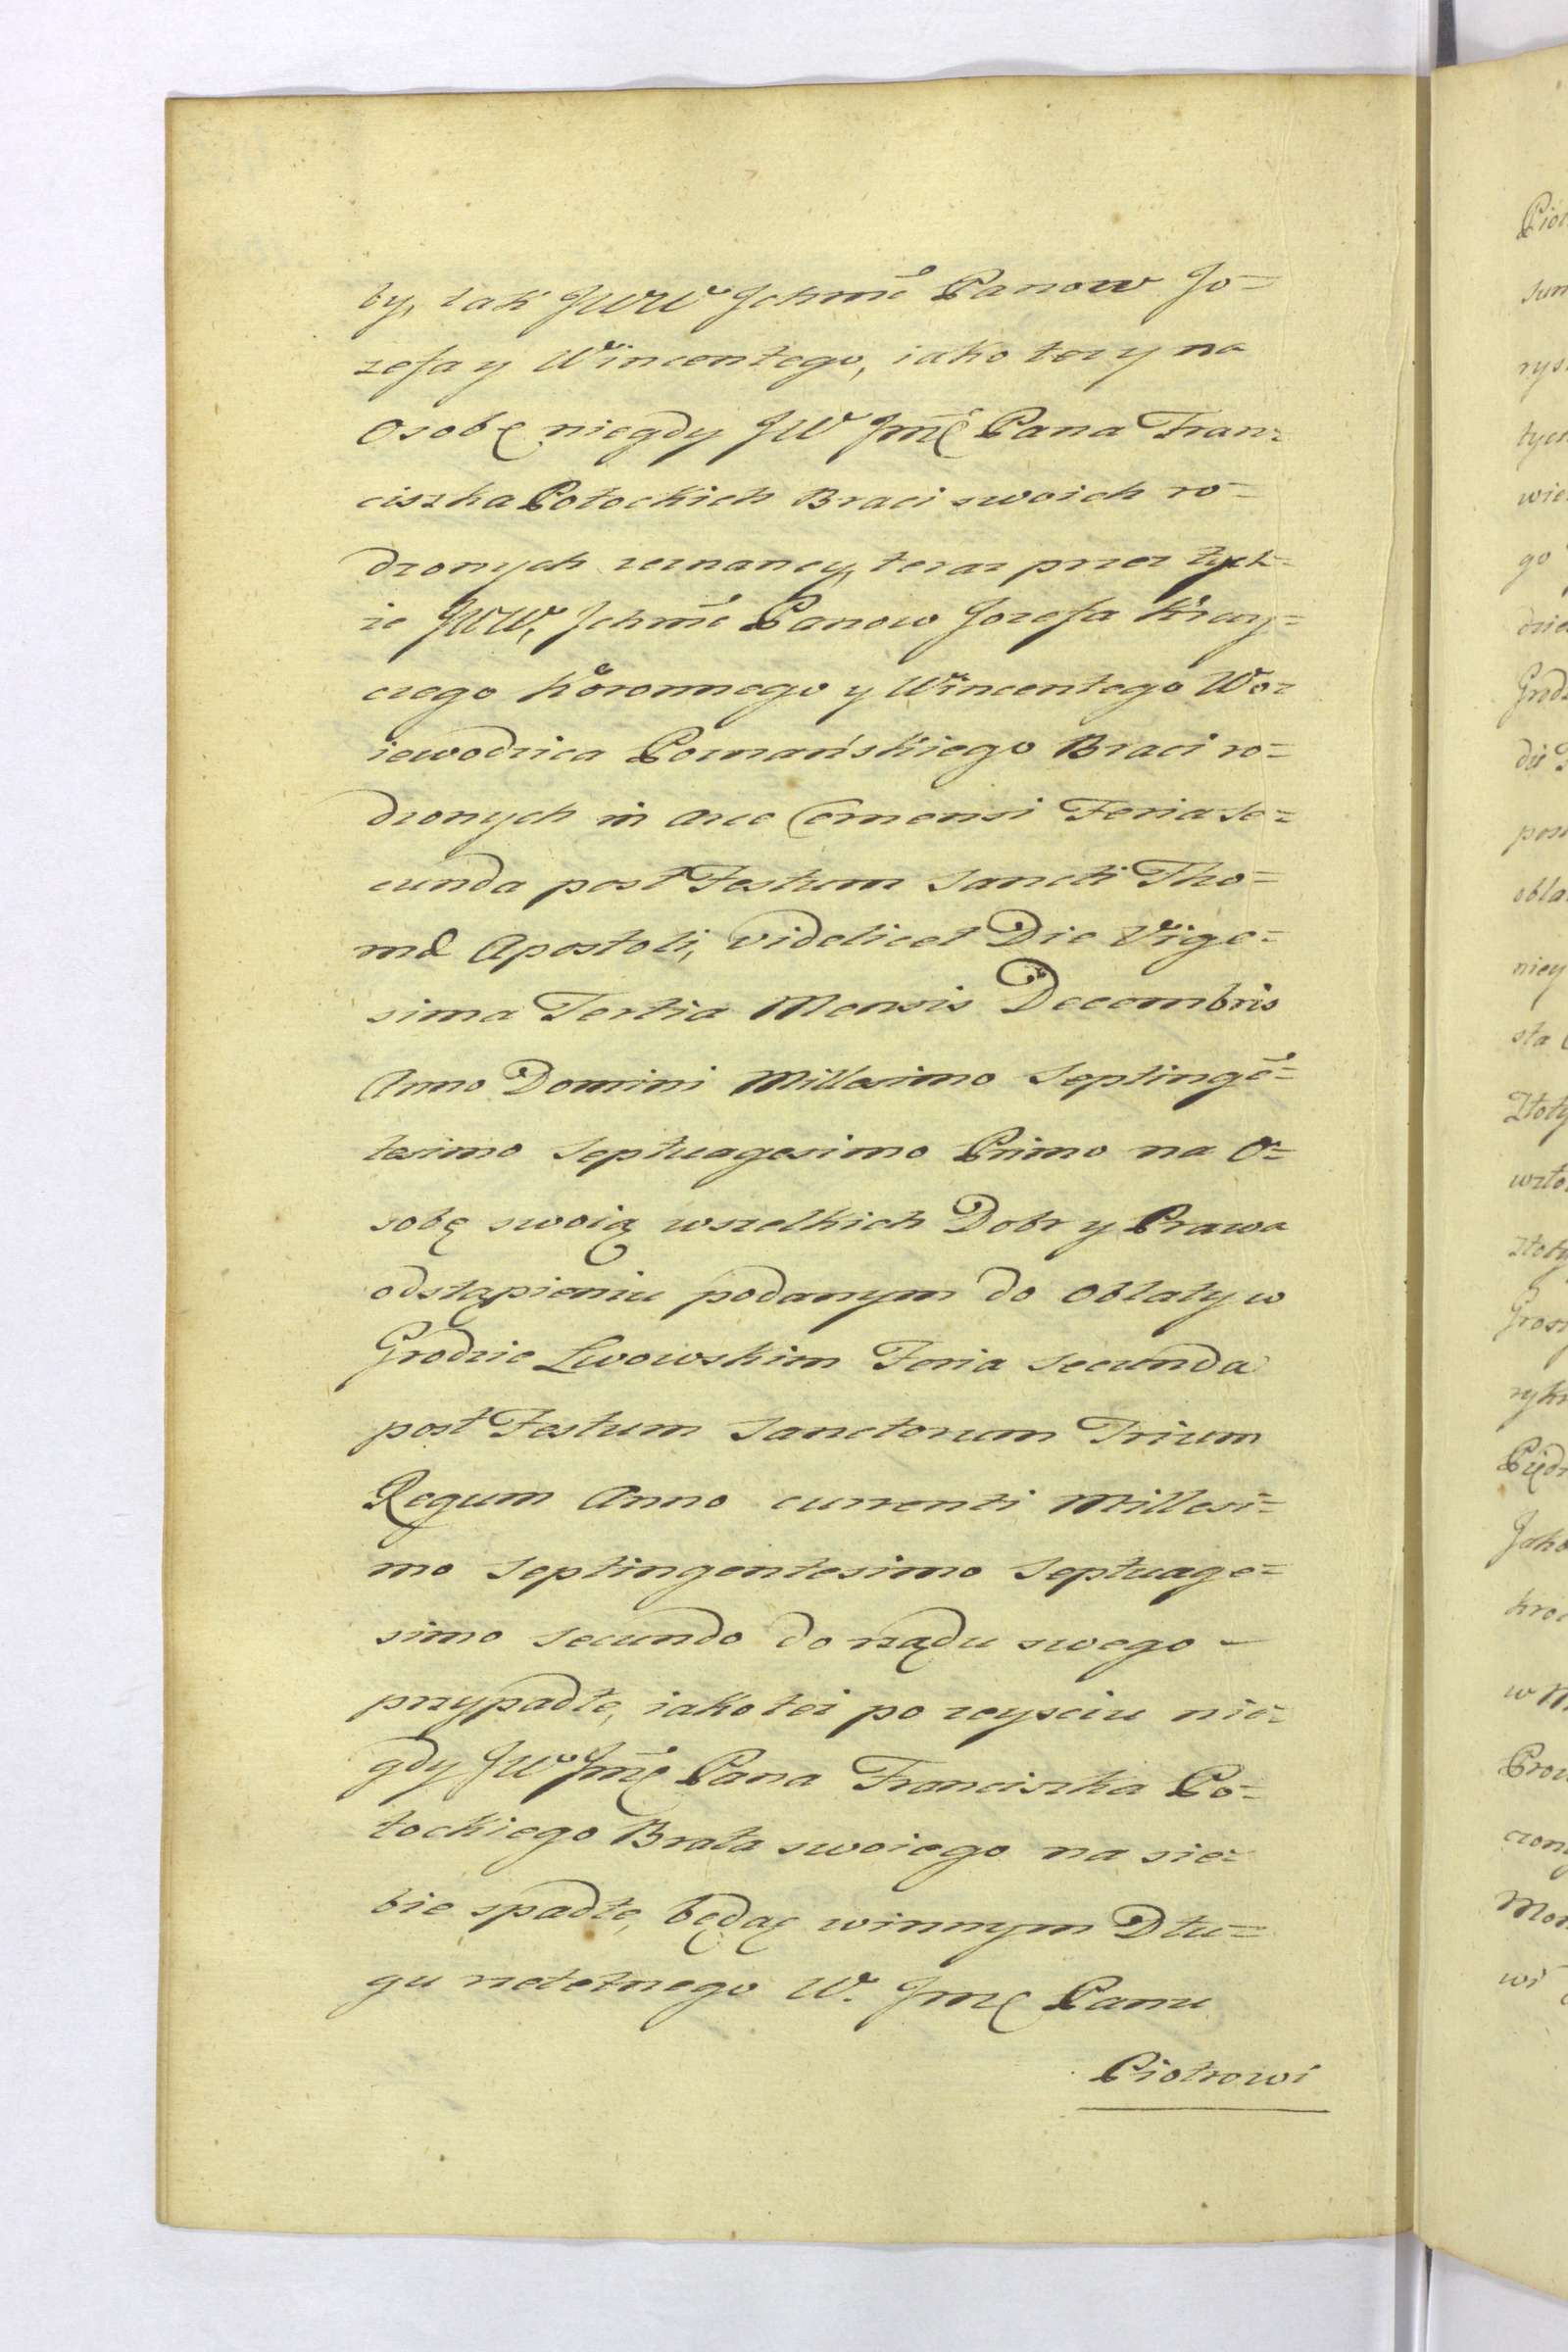 by, tak JWW Jchmć Panow Jo=
zefa y Wincentego, iako tez y na
Osobę niegdy JW Jmć Pana Fran=
ciszka Potockich Braci swoich ro=
dzonych zeznaney, teraz przez tych=
ze JWW, Jchmć Panow Jozefa Kray=
czego Koronnego y Wincentego Wo=
iewodzica Poznańskiego Braci ro=
dzonych in Arce Cemensi Feria Se=
cunda post Festum Sancti Tho=
mæ Apostoli, videlicet Die Vige=
sima Tertia Mensis Decembris
Anno Domini Millesimo Septingē=
tesimo Septuagesimo Primo na O=
sobę swoią wszelkich Dobr y Prawa
odstąpieniu podanym do Oblaty w
Grodzie Lwowskim Feria Secunda
post Festum Sanctorum Trium
Regum Anno currenti Millesi=
mo Septingentesimo Septuage=
simo Secundo do rządu swego –
przypadłe, iako też po zeysciu nie=
gdy JW Jmć Pana Franciszka Po=
tockiego Brata swoiego na sie=
bie spadłe, będąc winnym Dłu=
gu rzetelnego W. Jmć Panu
Piotrowi